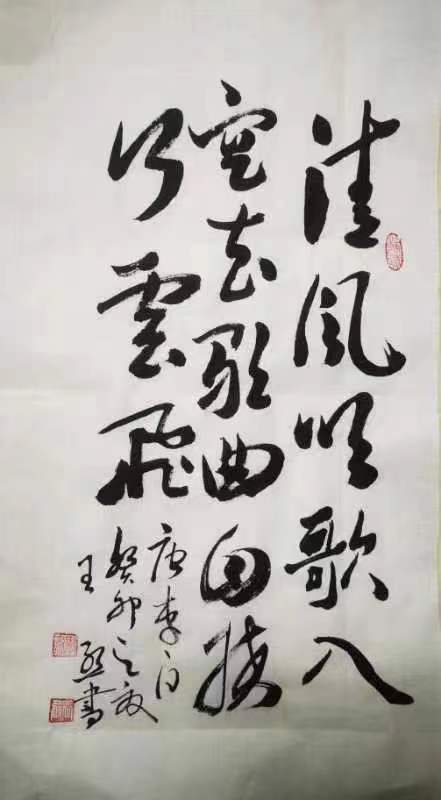 清風吹歌入
空去歌曲自繞
行雲飛
唐李白
癸卯之
王書